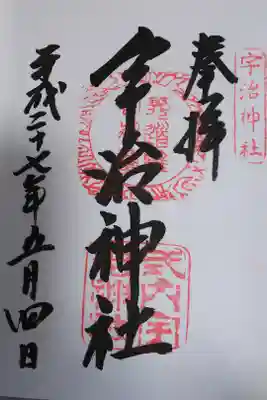 宇治神社
奉拝
宇治神社
平成二十七年五月四日